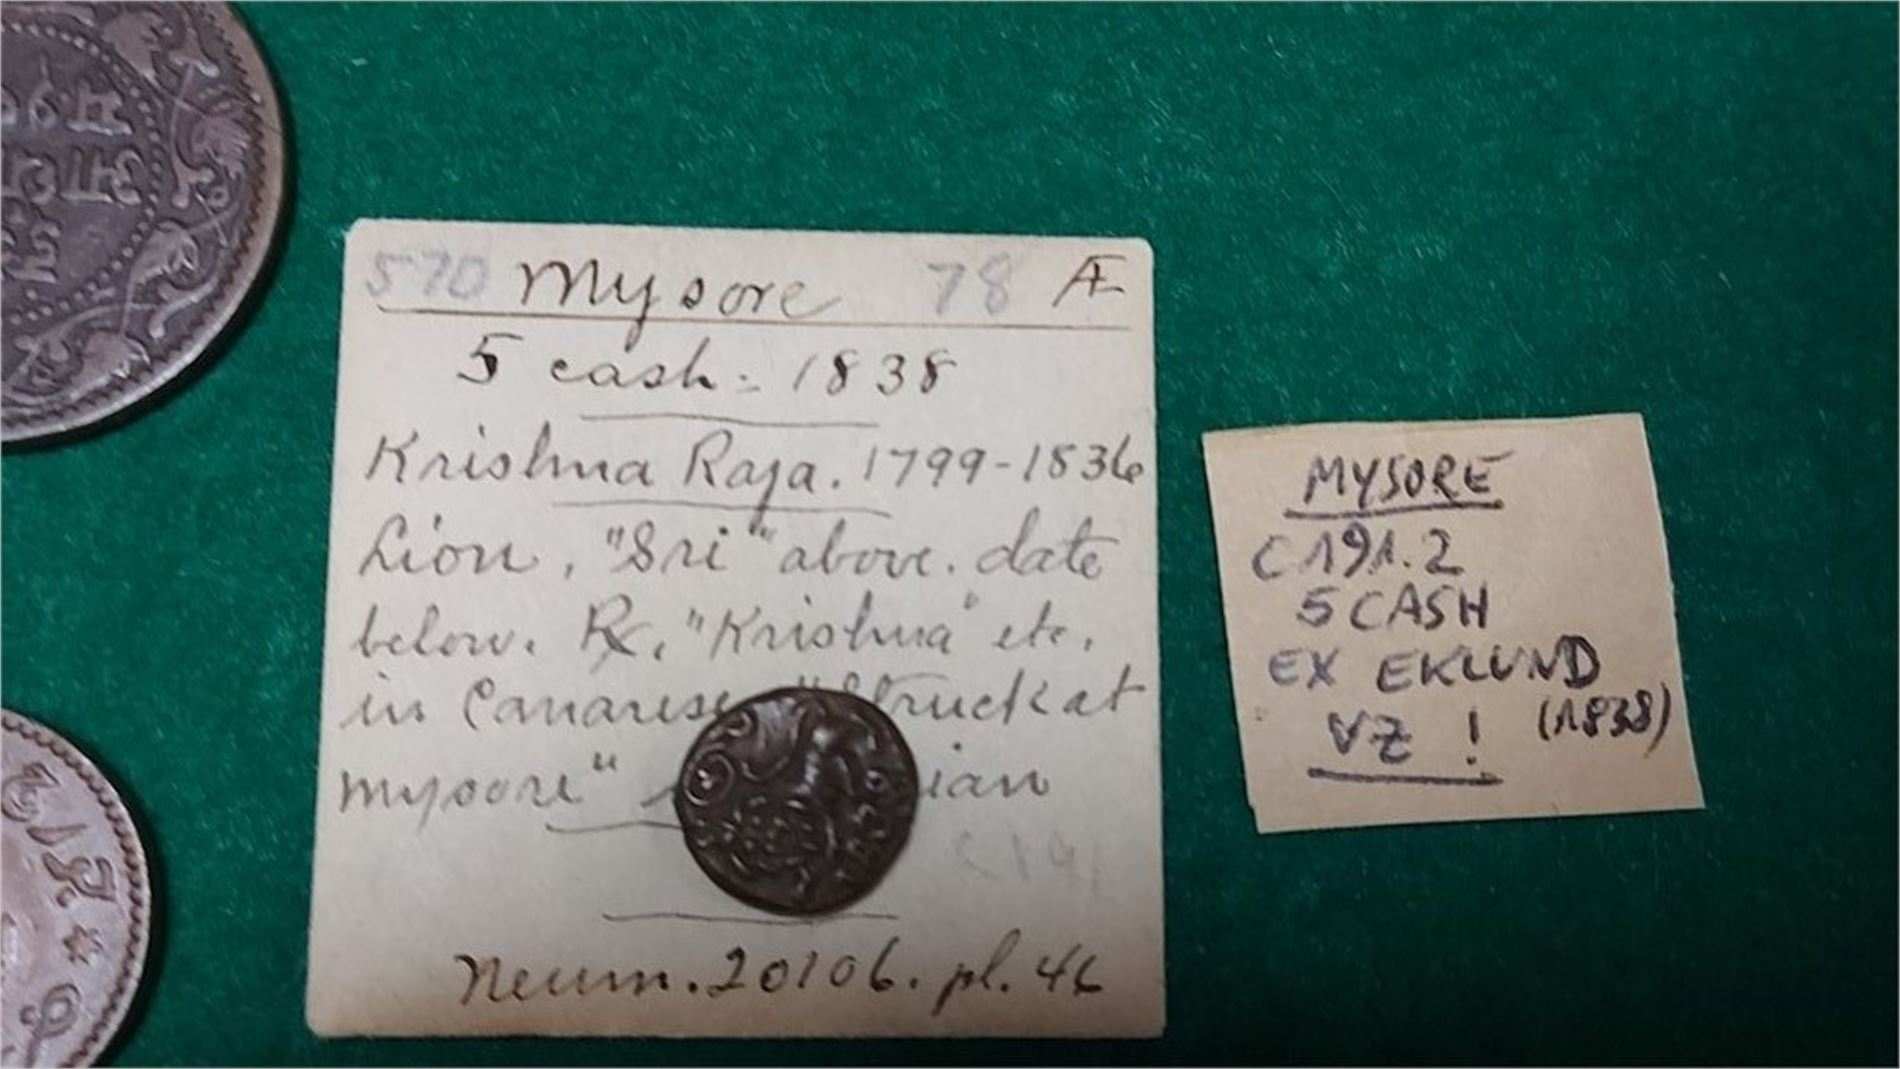 570 Mysore 78 Æ
5 cash = 1838
Krishna Raja. 1799-1836
Lion, "Sri" above. date
below. Rx. "Krishna" etc.
in Canarese "Struck at
Mysore" ian
C191
Neum. 20106. pl. 46
MYSORE
C191.2
5 CASH
EX EKLUND
(1838)
VZ !